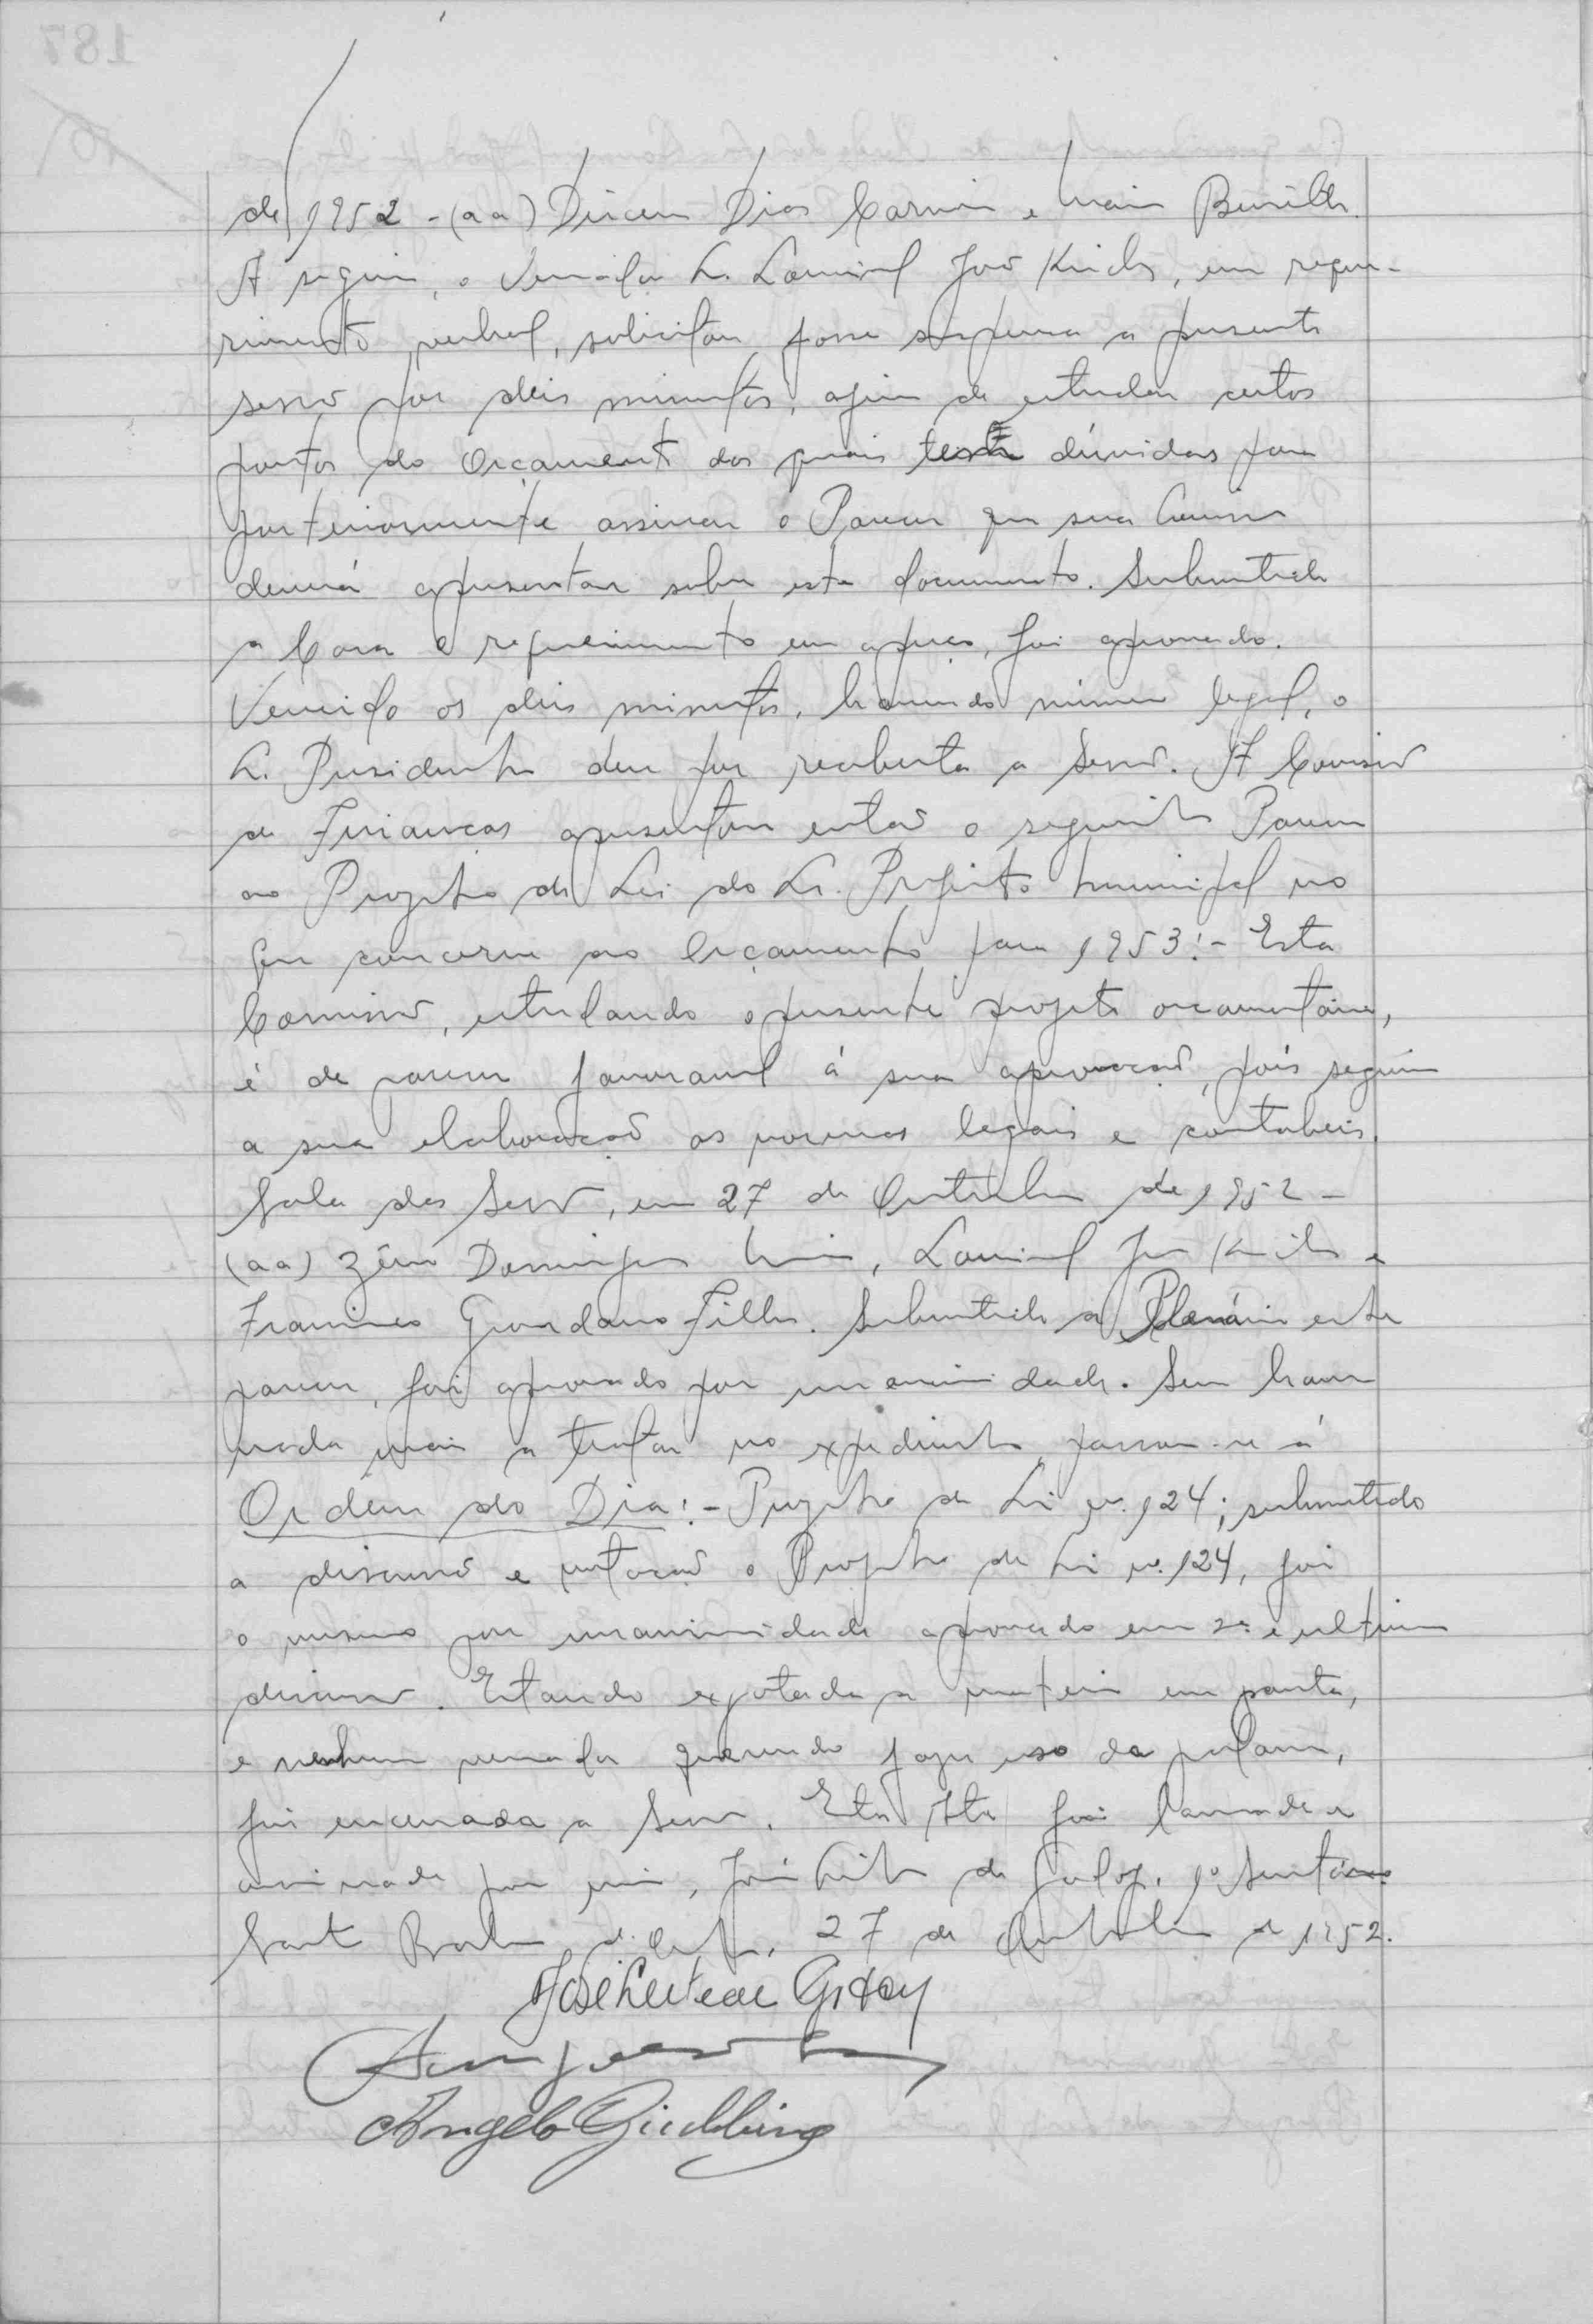 de 1952 - (aa) Dirceu Dias Carneiro e
A seguir, o Vereador Sr. Lourival João Krichs, em reque-
rimento verbal, solicitou fosse suspensa a presente
sessão por dois minutos, afim de estudar certos
pontos do Orçamento dos quais tem dúvidas para
posteriormente assinar o Parecer que sua Comissão
deverá apresentar sobre este documento. Submetido
a Casa o requerimento em apreço, foi aprovado.
Vencido os dois minutos, havendo número legal, o
Sr. Presidente deu por reaberta a Sessão. A Comissão
de Finanças apresentou então o seguinte Parecer
ao Projeto de Lei do Sr. Prefeito Municipal no
que concerne ao Orçamento para 1953:- Esta
Comissão, estudando o presente projeto orçamentário,
é de parecer favoravel á sua aprovação, pois seguiu
a sua elaboração as normas legais e contabeis.
Sala das Sessões, em 27 de Outubro de 1952 -
(aa) Zêno Domingues Maia, Lourival João Krichs e
Francisco Giordano Filho. Submetido a Plenário este
parecer, foi aprovado por unanimidade. Sem haver
nada mais a tratar no expediente, passou-se á
Ordem do Dia:- Projeto de Lei nº. 124; submetido
a discussão e votação o Projeto de Lei nº. 124, foi
o mesmo por unanimidade aprovado em 2ª. e ultima
discussão. Estando esgotada a materia em pauta,
e nenhum vereador querendo fazer uso da palavra,
foi encerrada a Sessão. Esta Ata foi lavrada e
assinada por mim, José Leite de Godoy, 1º Secretário.
Santa Barbara d'Oeste, 27 de Outubro de 1952.
José Leite de Godoy
Angelo Giubbina